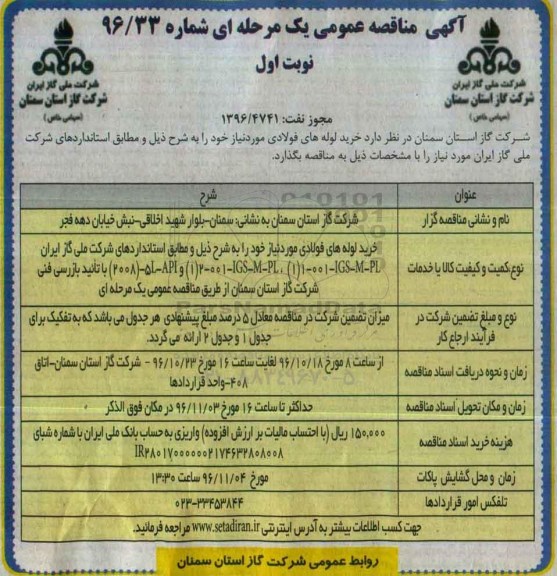 آگهی مناقصه عمومی یک مرحله ای شماره ۹۶/۳۳
نوبت اول
شرکت ملی گاز ایران
شرکت گاز استان سمنان
(سهامی خاص)
شرکت ملی گاز ایران
شرکت گاز استان سمنان
(سهامی خاص)
مجوز نفت: ۱۳۹۶/۴۷۴۱
شرکت گاز استان سمنان در نظر دارد خرید لوله های فولادی موردنیاز خود را به شرح ذیل و مطابق استانداردهای شرکت
ملی گاز ایران مورد نیاز را با مشخصات ذیل به مناقصه بگذارد.
عنوان
شرح
نام و نشانی مناقصه گزار
شرکت گاز استان سمنان به نشانی: سمنان-بلوار شهید اخلاقی-نبش خیابان دهه فجر
نوع،کمیت و کیفیت کالا یا خدمات
خرید لوله های فولادی موردنیاز خود را به شرح ذیل و مطابق استانداردهای شرکت ملی گاز ایران
IGS-M-PL-۰۰۱-۱(۱) , IGS-M-PL-۰۰۱-۲(۱) و API-۵L-(۲۰۰۸) با تأئید بازرسی فنی
شرکت گاز استان سمنان از طریق مناقصه عمومی یک مرحله ای
نوع و مبلغ تضمین شرکت در
فرآیند ارجاع کار
میزان تضمین شرکت در مناقصه معادل ۵ درصد مبلغ پیشنهادی هر جدول می باشد که به تفکیک برای
جدول ۱ و جدول ۲ ارائه می گردد.
زمان و نحوه دریافت اسناد مناقصه
از ساعت ۸ مورخ ۹۶/۱۰/۱۸ لغایت ساعت ۱۶ مورخ ۹۶/۱۰/۲۳ - شرکت گاز استان سمنان-اتاق
۴۰۸-واحد قراردادها
زمان و مکان تحویل اسناد مناقصه
حداکثر تا ساعت ۱۶ مورخ ۹۶/۱۱/۰۳ در مکان فوق الذکر
هزینه خرید اسناد مناقصه
۱۵۰,۰۰۰ ریال (با احتساب مالیات بر ارزش افزوده) واریزی به حساب بانک ملی ایران با شماره شبای
IR۲۸۰۱۷۰۰۰۰۰۰۰۲۱۷۴۶۳۲۸۰۸۰۰۸
زمان و محل گشایش پاکات
مورخ ۹۶/۱۱/۰۴ ساعت ۱۳:۳۰
تلفکس امور قراردادها
۰۲۳-۳۳۴۵۳۸۴۴
جهت کسب اطلاعات بیشتر به آدرس اینترنتی www.setadiran.ir مراجعه فرمائید.
روابط عمومی شرکت گاز استان سمنان